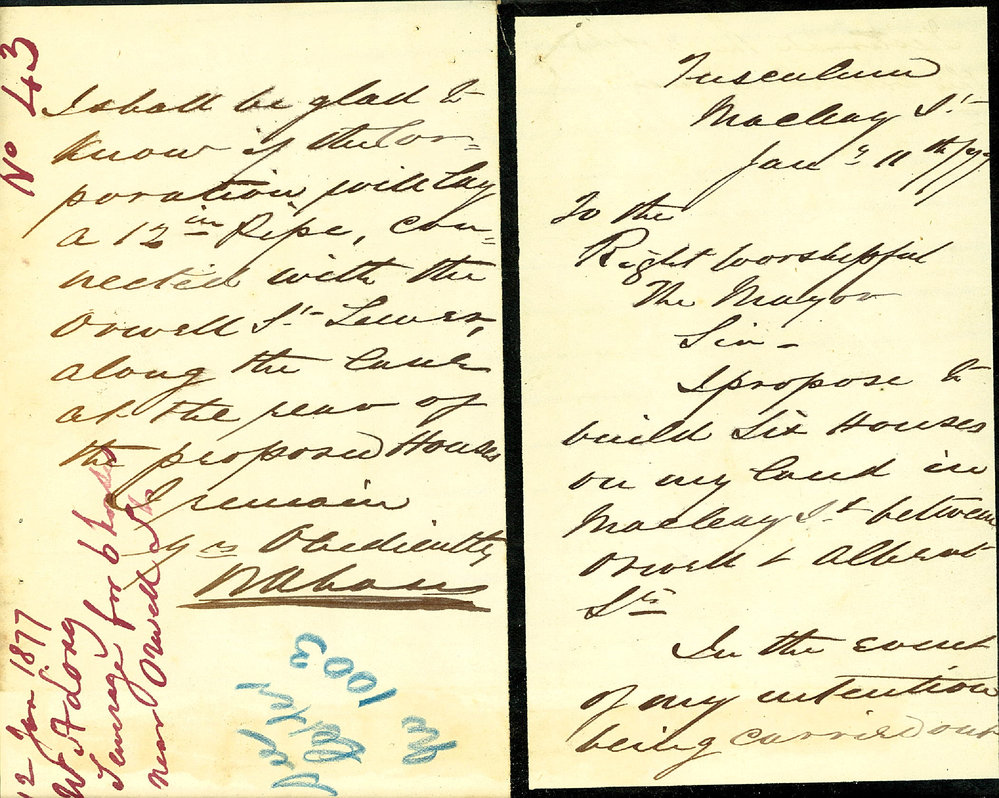 Tusculum
Macleay St
Jany 11th/77
To the
Right Worshipful
The Mayor
Sir -
I propose to
build Six Houses
on my land in
Macleay St between
Orwell & Albert
Sts
In the event
of my intention
being carried out
I shall be glad to
know if the Cor-
poration will lay
a 12 in Pipe, con-
nected with the
Orwell St Sewer,
along the Lane
at the rear of
the proposed Houses
I remain
Yrs Obediently
W A Long
No 43
12 Jan 1877
W. A Long
Sewerage for 6 houses
near Orwell St
1003